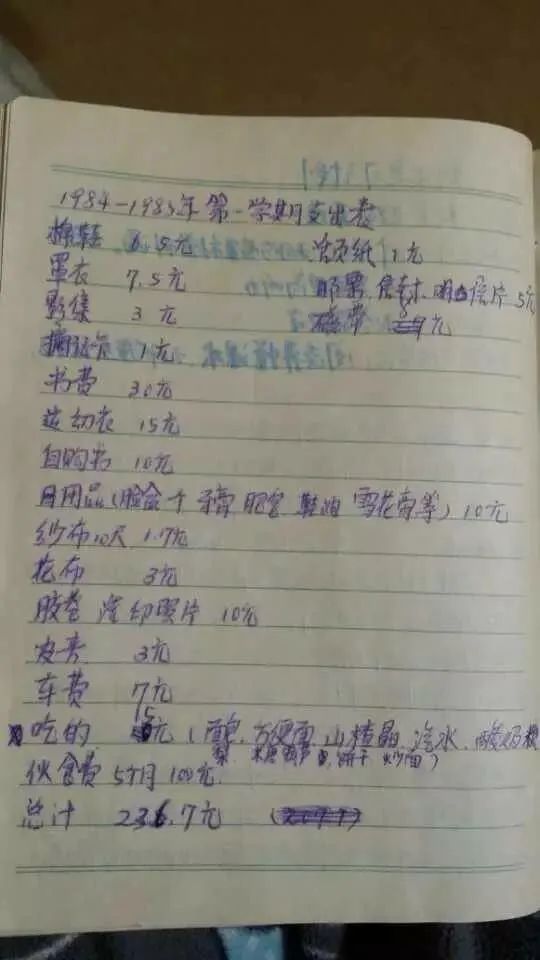 1984-1985年第一学期支出表
棉鞋 6.5元 活页纸 1元
罩衣 7.5元 邮票、信封、明信片 5元
影集 3元 磁带 9元
1元
书费 30元
运动衣 15元
自购书 10元
日用品(脸盆 牙膏 肥皂 鞋油 雪花膏等) 10元
纱布10尺 1.7元
花布 3元
胶卷 洗印照片 10元
发夹 3元
车费 7元
吃的 15元(面包、方便面、山楂晶、汽水、酸奶
梨、冰糖葫芦、饼干、炒面)
伙食费 5个月 100元
总计 236.7元